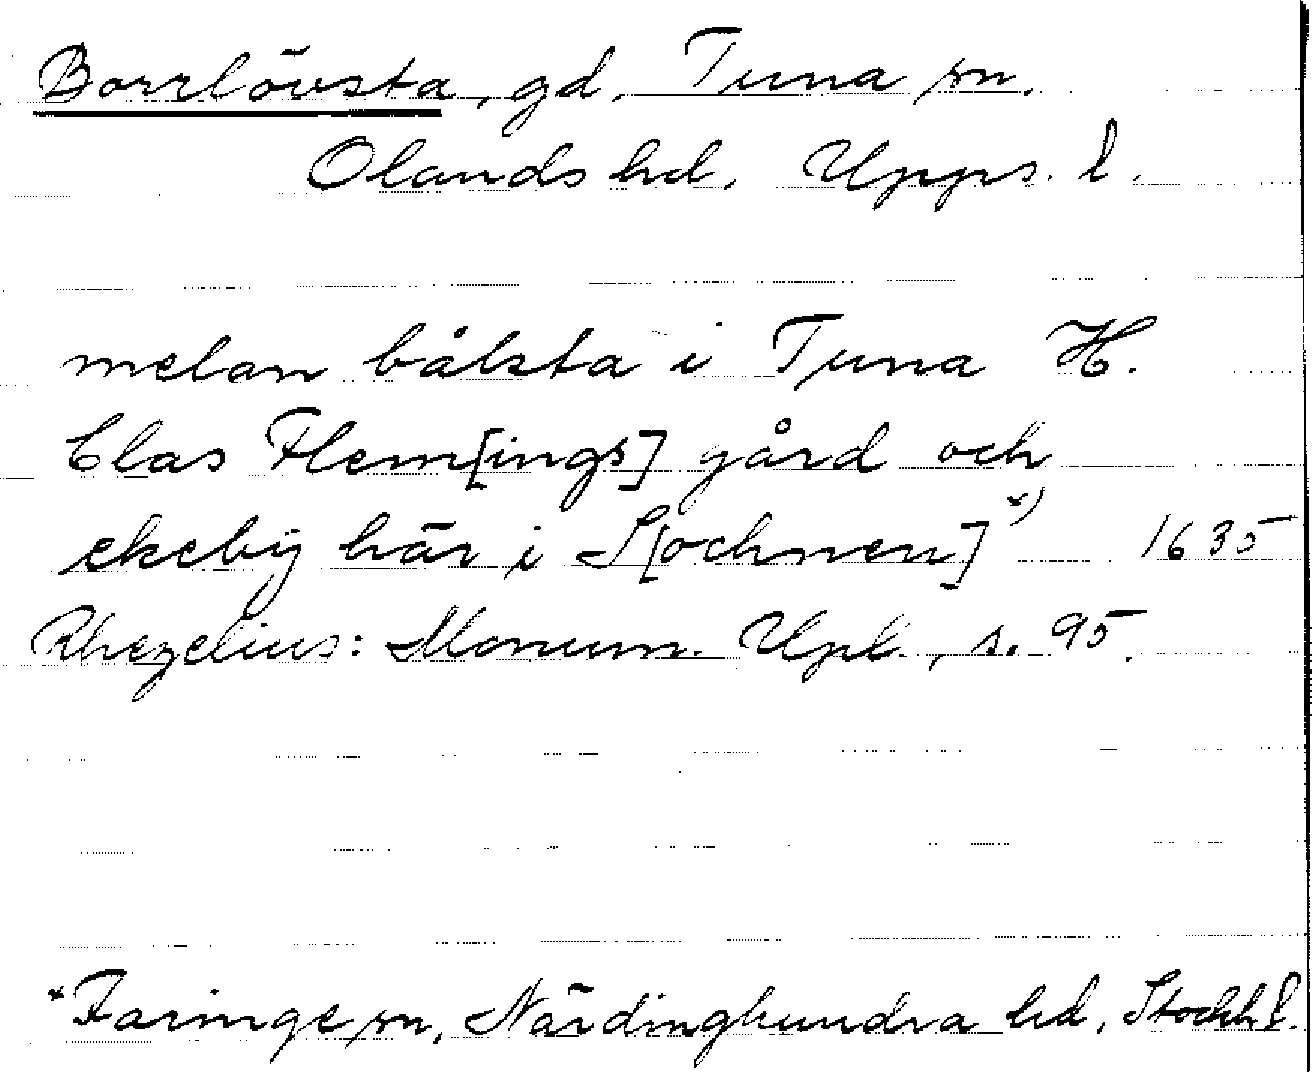 Borrlövsta, gd, Tuna sn.
Olands hd, Upps. l.
melan bålsta i Tuna H.
Clas Flem[ings] gård och
ekebÿ här i S[ochnen]*) 1635
Rhezelius: Monum. Upl., s. 95.
*Faringe sn, Närdinghundra hd, Stockh. l.